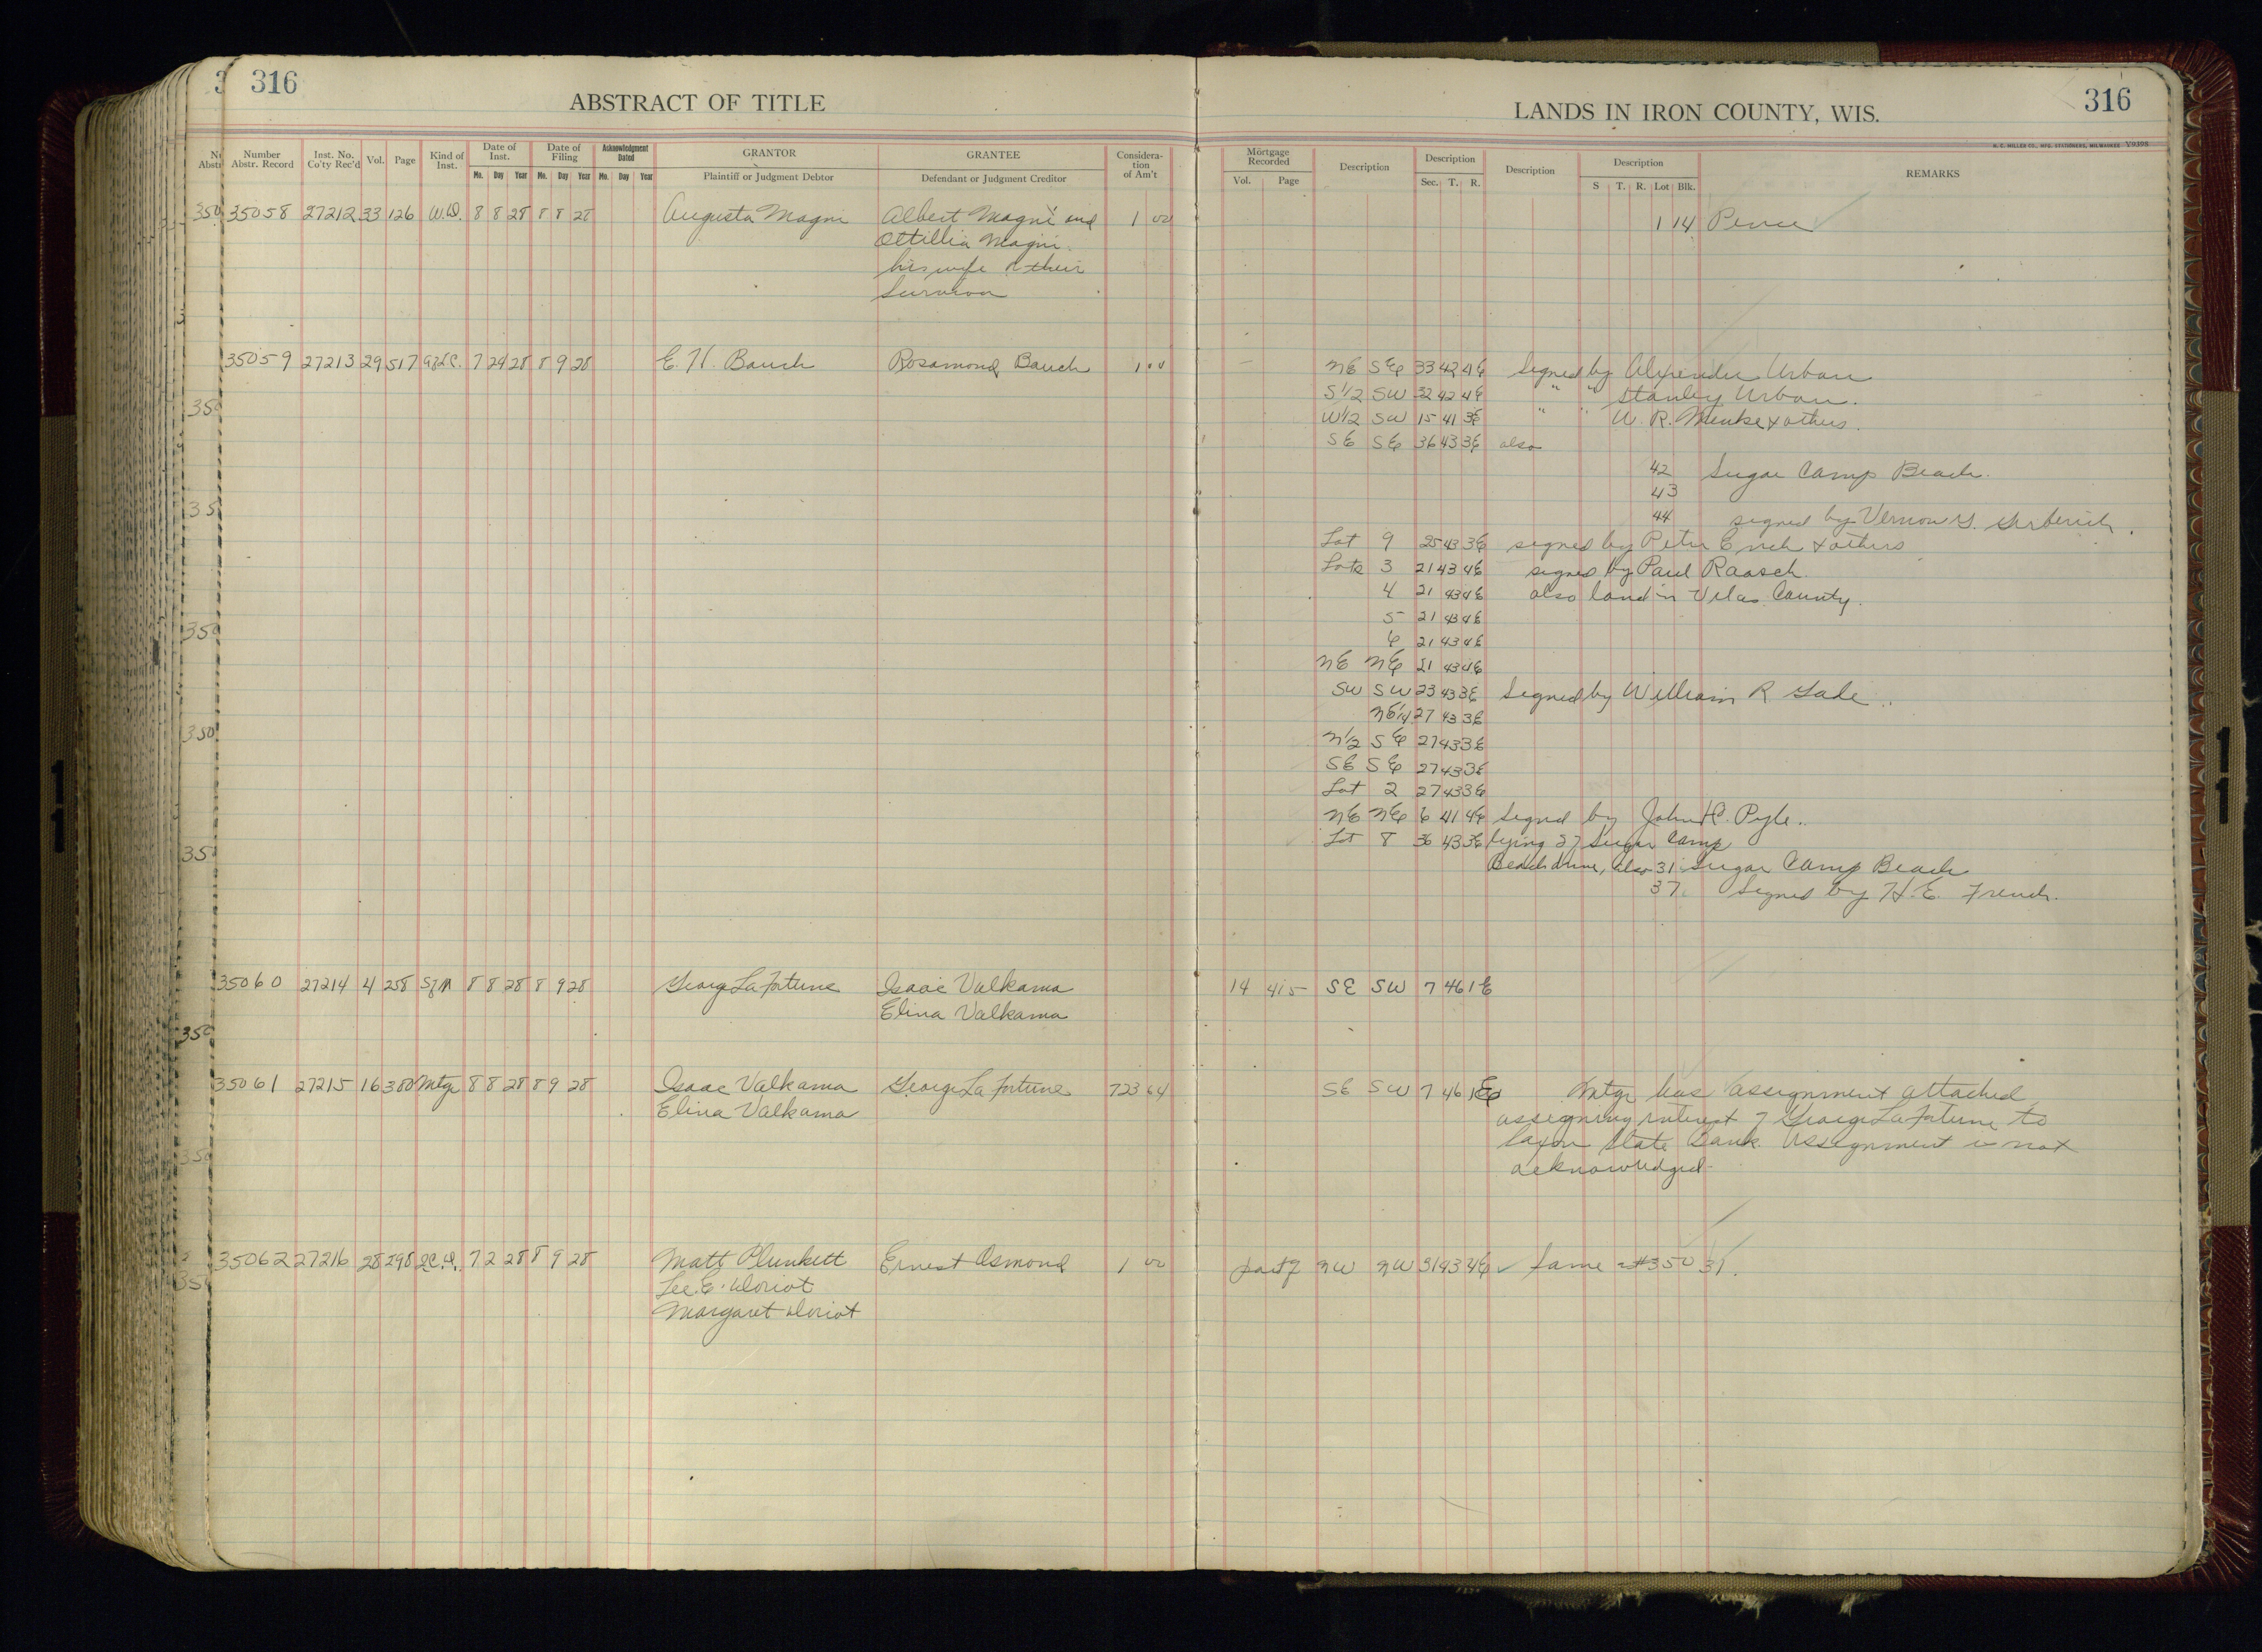 316
ABSTRACT OF TITLE
LANDS IN IRON COUNTY, WIS.
316
H. C. MILLER CO., MFG. STATIONERS, MILWAUKEE V9398
Number Abstr. Record
Inst. No. Co'ty Rec'd
Vol.
Page
Kind of Inst.
Date of Inst.
Mo. Day Year
Date of Filing
Mo. Day Year
Acknowledgment Dated
Mo. Day Year
GRANTOR
Plaintiff or Judgment Debtor
GRANTEE
Defendant or Judgment Creditor
Considera-tion of Am't
Mortgage Recorded
Vol. Page
Description
Description
Sec. T. R.
Description
Description
S T. R. Lot Blk.
REMARKS
35058 27212 33 126 W.D. 8 8 28 8 8 28 Augusta Magni Albert Magni and 1 00 1 14 Pence
Ottillia Magni
his wife or their
survivor
35059 27213 29 517 7 24 28 8 9 28 E. H. Bauch Rosamond Bauch 1 00 NE SE 33 42 4E Signed by Alexander Urban
S1/2 SW 32 42 4E " " Stanley Urban.
W1/2 SW 15 41 3E " " W. R. Menke & others.
SE SE 36 43 3E also
42 Sugar Camp Beach.
43
44 signed by Vernon G.
Lot 9 25 43 3E signed by Peter & others
Lots 3 21 43 4E signed by Paul Raasch.
4 21 43 4E also land in Vilas County.
5 21 43 4E
6 21 43 4E
NE NE 21 43 4E
SW SW 23 43 3E Signed by William R Gade
NE1/4 27 43 3E
N1/2 SE 27 43 3E
SE SE 27 43 3E
Lot 2 27 43 3E
NE NE 6 41 4E Signed by John C. Pyle.
Lot 8 36 43 3E lying of Sugar Camp
Beach drive, also 31 Sugar Camp Beach
37 Signed by H. E. French.
35060 27214 4 258 SfM 8 8 28 8 9 28 George LaFortune Isaac Valkama 14 415 SE SW 7 46 1E
Elina Valkama
35061 27215 16 380 Mtge 8 8 28 8 9 28 Isaac Valkama George LaFortune 723 64 SE SW 7 46 1E Mtge has assignment attached
Elina Valkama assigning interest of George LaFortune to
Saxon State Bank. Assignment is not
acknowledged
35062 27216 28 298 Q.C.D. 7 2 28 8 9 28 Matt Plunkett Ernest Osmond 1 00 part of NW NW 31 43 4E Same as #35031.
Lee E. Doriot
Margaret Doriot